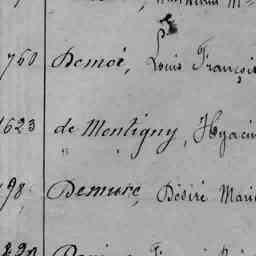 760 Demoé, Louis François
1623 de Montigny, Hyacin
98 Demure, Désiré Marie